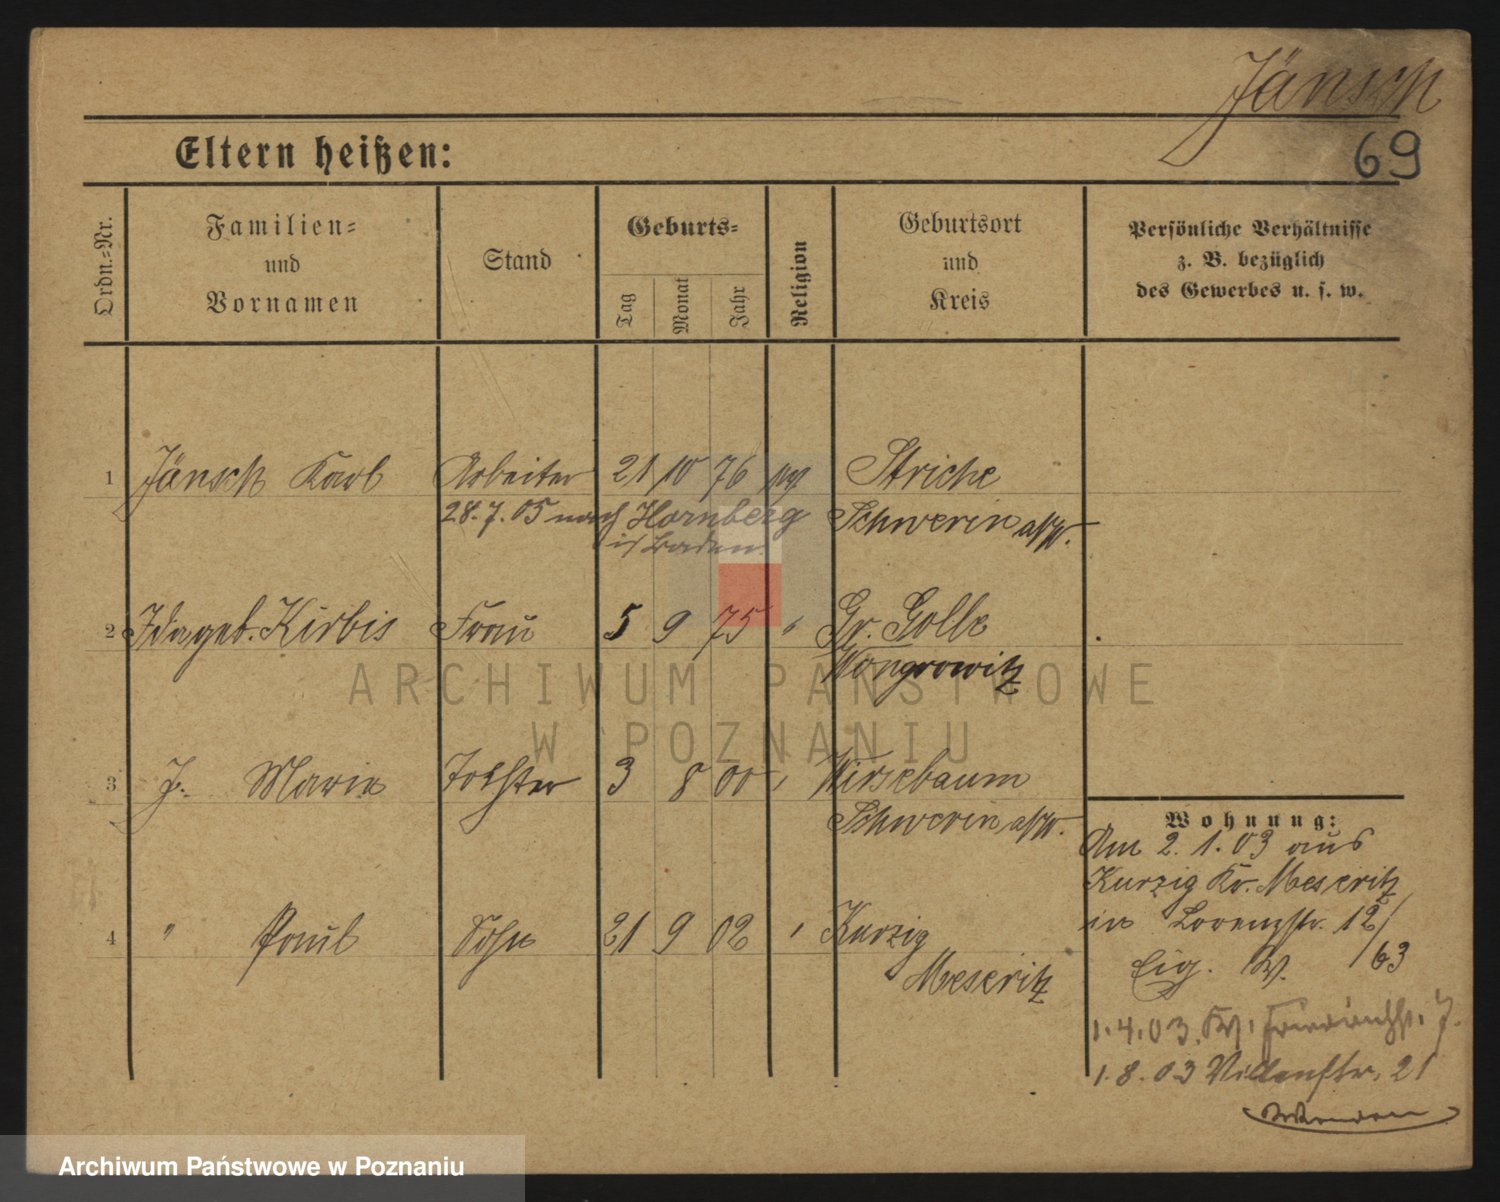 Jänsch
69
Eltern heißen:
Ordn.=Nr.
Familien=
und
Vornamen
Stand
Geburts=
Tag
Monat
Jahr
Religion
Geburtsort
und
Kreis
Persönliche Verhältnisse
z. B. bezüglich
des Gewerbes u. s. w.
1 Jänsch Karl Arbeiter 21 10 76 Striche
28.7.05 nach Hornberg Schwerin a/W.
i/ Baden
2 Ida geb. Kirbis Frau 5 9 75 " Gr. Golle
Wongrowitz
3 J. Marie Tochter 3 8 00 " Wirsebaum
Schwerin a/W.
4 " Paul Sohn 21 9 02 " Kurzig
Meseritz
Wohnung:
Am 2.1.03 aus
Kurzig Kr. Meseritz
in Lorenzstr. 12/
Eig. W. /63
1.4.03. KW. Friedrichstr. 7.
1.8.03 Victoriastr. 21
Wenden
ARCHIWUM PAŃSTWOWE
W POZNANIU
Archiwum Państwowe w Poznaniu